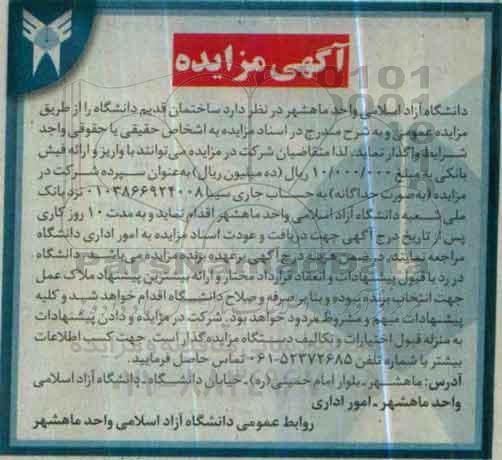 آگهی مزایده
دانشگاه آزاد اسلامی واحد ماهشهر در نظر دارد ساختمان قدیم دانشگاه را از طریق
مزایده عمومی و به شرح مندرج در اسناد مزایده به اشخاص حقیقی یا حقوقی واجد
شرایط واگذار نماید. لذا متقاضیان شرکت در مزایده می‌توانند با واریز و ارائه فیش
بانکی به مبلغ ۱۰/۰۰۰/۰۰۰ ریال (ده میلیون ریال) به‌عنوان سپرده شرکت در
مزایده (به‌صورت جداگانه) به حساب جاری سیبا ۰۱۰۳۸۶۶۹۲۴۰۰۸ نزد بانک
ملی شعبه دانشگاه آزاد اسلامی واحد ماهشهر اقدام نماید و به مدت ۱۰ روز کاری
پس از تاریخ درج آگهی جهت دریافت و عودت اسناد مزایده به امور اداری دانشگاه
مراجعه نمایند. در ضمن هزینه درج آگهی برعهده برنده مزایده می‌باشد. دانشگاه
در رد یا قبول پیشنهادات و انعقاد قرارداد مختار و ارائه بیشترین پیشنهاد ملاک عمل
جهت انتخاب برنده نبوده و بنا بر صرفه و صلاح دانشگاه اقدام خواهد شد و کلیه
پیشنهادات مبهم و مشروط مردود خواهد بود. شرکت در مزایده و دادن پیشنهادات
به منزله قبول اختیارات و تکالیف دستگاه مزایده گذار است. جهت کسب اطلاعات
بیشتر با شماره تلفن ۵۲۳۷۲۶۸۵-۰۶۱ تماس حاصل فرمایید.
آدرس: ماهشهر ـ بلوار امام خمینی (ره) ـ خیابان دانشگاه ـ دانشگاه آزاد اسلامی
واحد ماهشهر ـ امور اداری
روابط عمومی دانشگاه آزاد اسلامی واحد ماهشهر